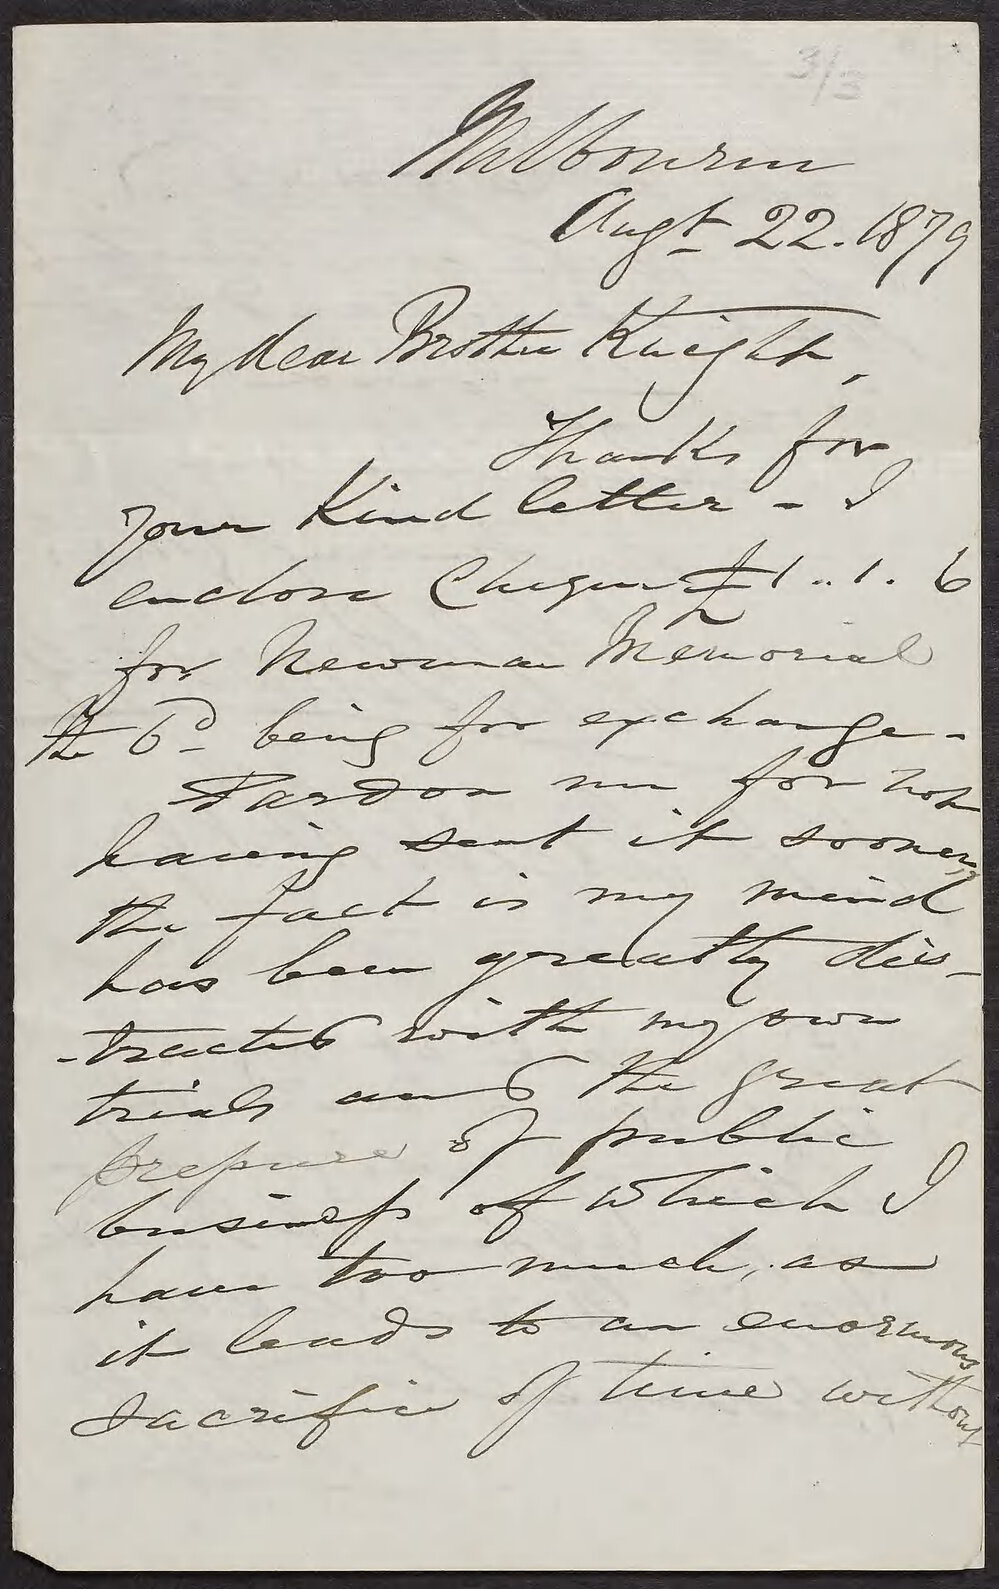 3/3
Melbourne
Augt 22. 1879
My dear Brother Knight,
Thanks for
your kind letter - I
enclose Cheque £1..1.6
for Newman Memorial
the 6d being for exchange -
Pardon me for not
having sent it sooner,
the fact is my mind
has been greatly dis-
-tracted with my own
trials and the great
prepure of public
business of which I
have too much, as
it leads to an enormous
sacrifice of time without